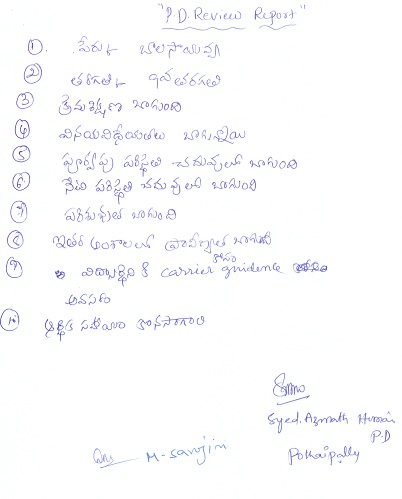 "P.D. Review Report"
1. పేరు:- బాలసాయమ్మ
2 తరగతి:- 9వ తరగతి
3 క్రమశిక్షణ బాగుంది
4 వినయవిధేయతలు బాగున్నాయి
5 పూర్వపు పరిస్థితి చదువులో బాగుంది
6 నేటి పరిస్థితి చదువులో బాగుంది
7 పరిశుభ్రత బాగుంది
8 ఇతర అంశాలలో ప్రావీణ్యత బాగుంది
9 విద్యార్థిని కి carrier guidence కోసం
అవసరం
10 ఆర్థిక సహాయం కొనసాగాలి
Syed. Azmath Hussain
P.D
M-Sarojini
Pothaipally